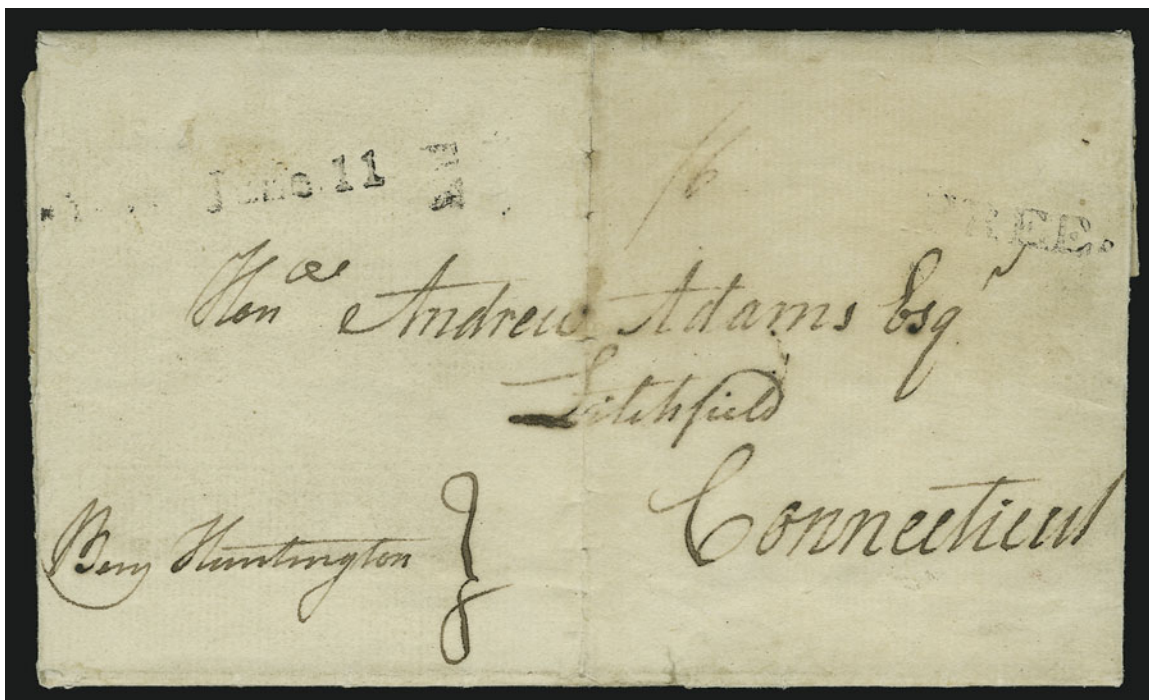 June.11
FREE.
16
Honble Andrew Adams Esqr
Litchfield
Connecticut
Benj Huntington